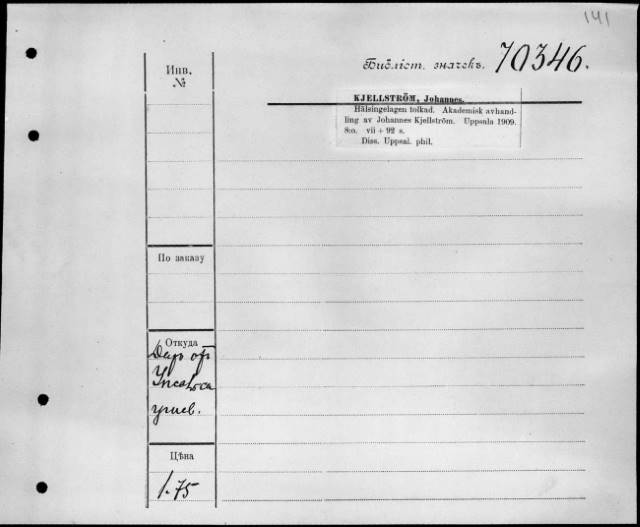 141
Библіот. значекъ. 70346.
Инв.
№
KJELLSTRÖM, Johannes.
Hälsingelagen tolkad. Akademisk avhand-
ling av Johannes Kjellström. Uppsala 1909.
8:o. vii + 92 s.
Diss. Uppsal. phil.
По заказу
Откуда
Даръ отъ
унив.
Цѣна
1.75